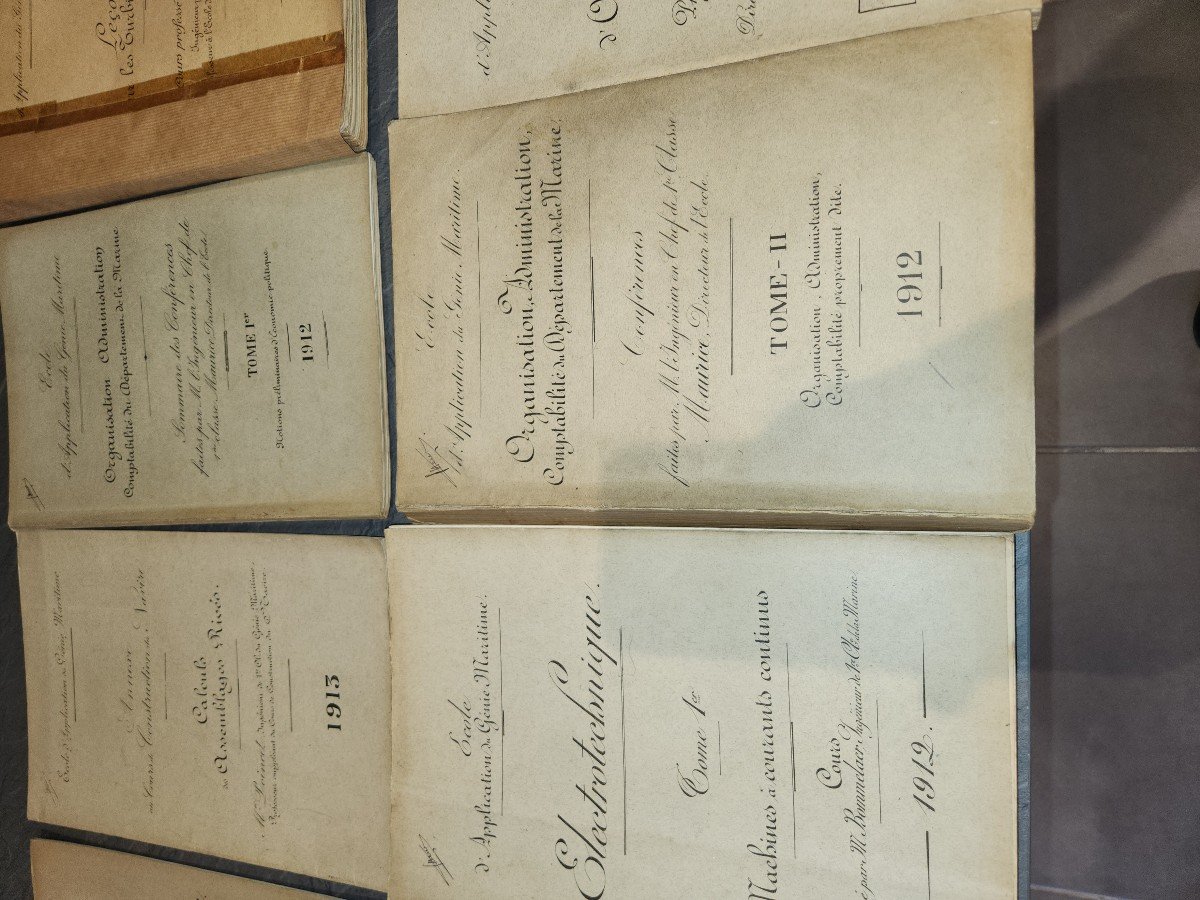 d'Application du Gé
Leço
les Turbi
ours profess
Ingénieur
d'App
d'O
P
Dire
Ecole
d'Application du Génie Maritime
Organisation Administration
Comptabilité du Département de la Marine
Sommaire des Conférences
faites par M. l'Ingénieur en Chef de
1re classe Maurice Directeur de l'Ecole
TOME Ier
1912
Notions préliminaires d'Economie politique
Ecole
d'Application du Génie Maritime.
Organisation, Administration,
Comptabilité du Département de la Marine.
Conférences
faites par M. l'Ingénieur en Chef de 1re Classe
Maurice, Directeur de l'Ecole.
TOME-II
Organisation, Administration,
Comptabilité proprement dite.
1912
Ecole d'Application du Génie Maritime
Annexe
au Cours de Construction du Navire
Calculs
des Assemblages Rivés.
Ingénieur de 1re Cl. du Génie Maritime,
Professeur suppléant du Cours de Construction du
1913
Ecole
d'Application du Génie Maritime.
Electrotechnique.
Tome 1er
Machines à courants continus
Cours
é par Mr Bommelaer Ingénieur de 1re Cl. de la Marine.
1912.